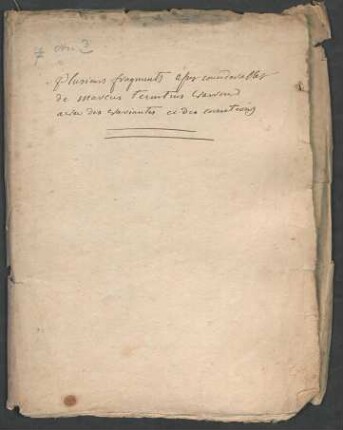 Plusieurs fragments assez considerables
de Marcus Terentius Varron
avec des variantes et des corrections